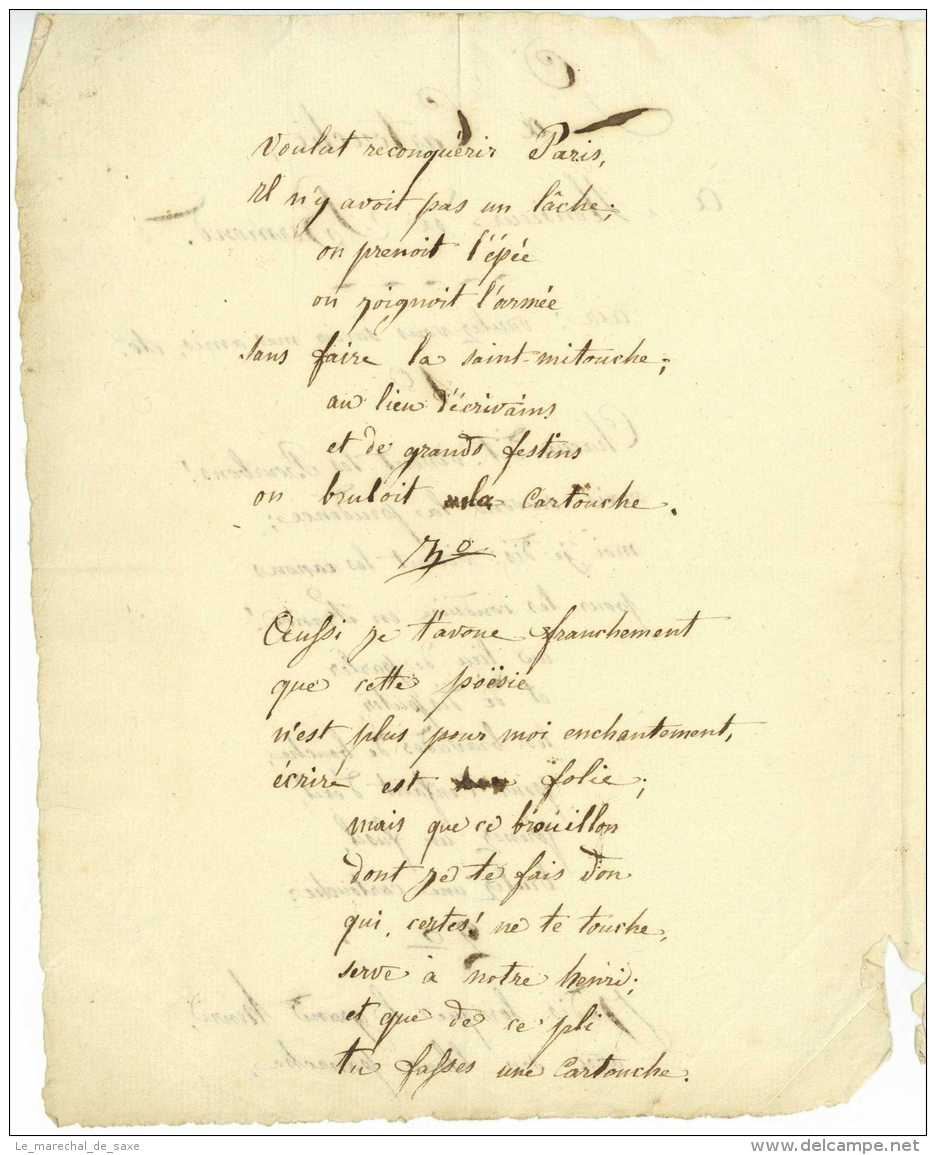 Voulut reconquérir Paris,
Il n'y avoit pas un lâche;
on prenoit l'épée
on joignoit l'armée
sans faire la saint-mitouche;
au lieu d'écrivains
et de grands festins
on bruloit la Cartouche.
3º
Aussi je t'avoue franchement
que cette poësie
n'est plus pour moi enchantement,
écrire est folie;
mais que ce broüillon
dont je te fais don
qui, certes! ne te touche,
serve à notre henri;
et que de ce pli
tu fasses une Cartouche.
Le_marechal_de_saxe
www.delcampe.net